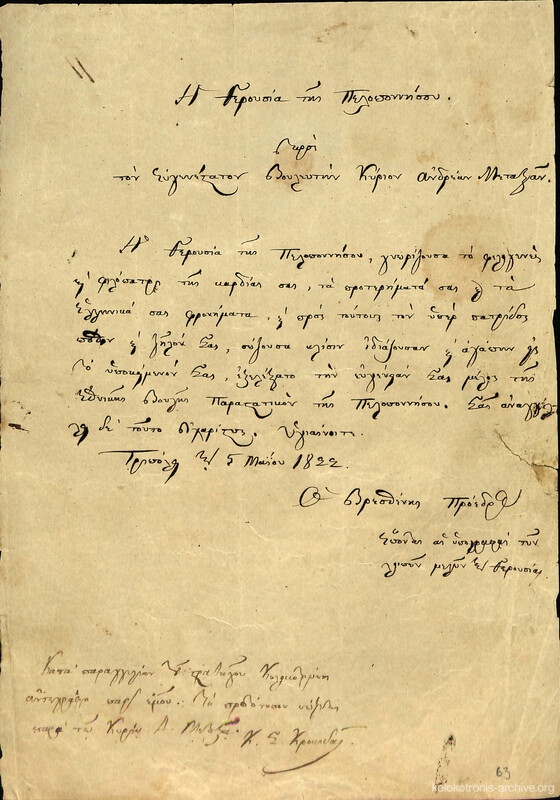 Ἡ Γερουσία τῆς Πελοποννήσου.
Πρὸς
τὸν Εὐγενέστατον Βουλευτὴν Κύριον Ἀνδρέαν Μεταξᾶν.
Ἡ Γερουσία τῆς Πελοποννήσου, γνωρίζουσα τὸ φιλογενὲς
καὶ φιλόπατρι τῆς καρδίας σας, τὰ προτερήματά σας καὶ τὰ
Ἑλληνικά σας φρονήματα, καὶ πρὸς τούτοις τὸν ὑπὲρ πατρίδος
πόθον καὶ ζῆλόν σας, σώζουσα κλίσιν ἰδιάζουσαν καὶ ἀγάπην εἰς
τὸ ὑποκείμενόν σας, ἐξελέξατο τὴν εὐγένειάν σας μέλος τῆς
Ἐθνικῆς Βουλῆς Παραστατικὸν τῆς Πελοποννήσου. Σᾶς ἀναγγέλ
λει δὲ τοῦτο Ὑγιαίνοιτε.
Τριπολιτζᾷ 5 Μαΐου 1822.
Ὁ Βρεσθένης Πρόεδρος
Ἕπονται αἱ ὑπογραφαὶ τῶν
λοιπῶν μελῶν τῆς Γερουσίας
Κατὰ παραγγελίαν τοῦ Στρατηγοῦ Κολοκοτρώνη
ἀντεγράφη παρ' ἐμοῦ. Τὸ πρωτότυπον σώζεται
παρὰ τοῦ Κυρίου Α. Μεταξᾶ.
63
kolokotronis-archive.org